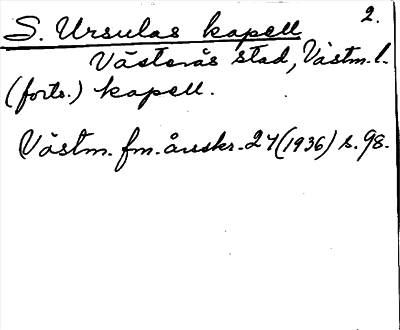 2.
S. Ursulas kapell
Västerås stad, Västm. l.
(forts.) kapell.
Västm. fm. årsskr. 24 (1936) s. 98.